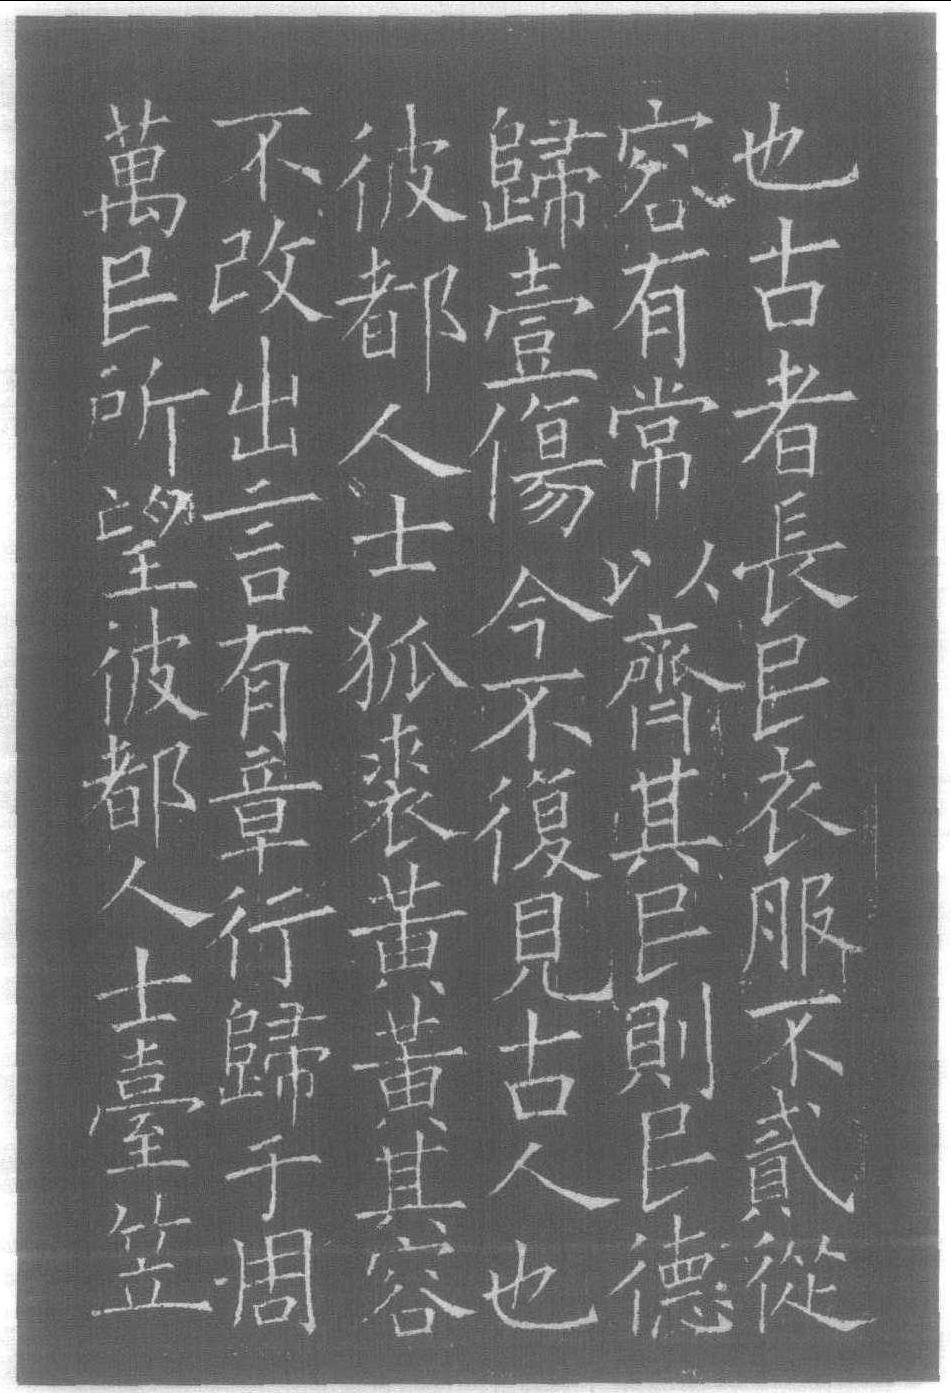 也古者長民衣服不貳從
容有常以齊其民則民德
歸壹傷今不復見古人也
彼都人士狐裘黃黃其容
不改出言有章行歸于周
萬民所望彼都人士臺笠